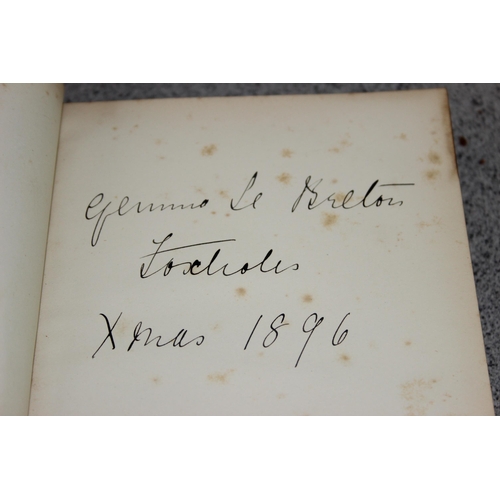 Le Breton
Foxholes
Xmas 1896